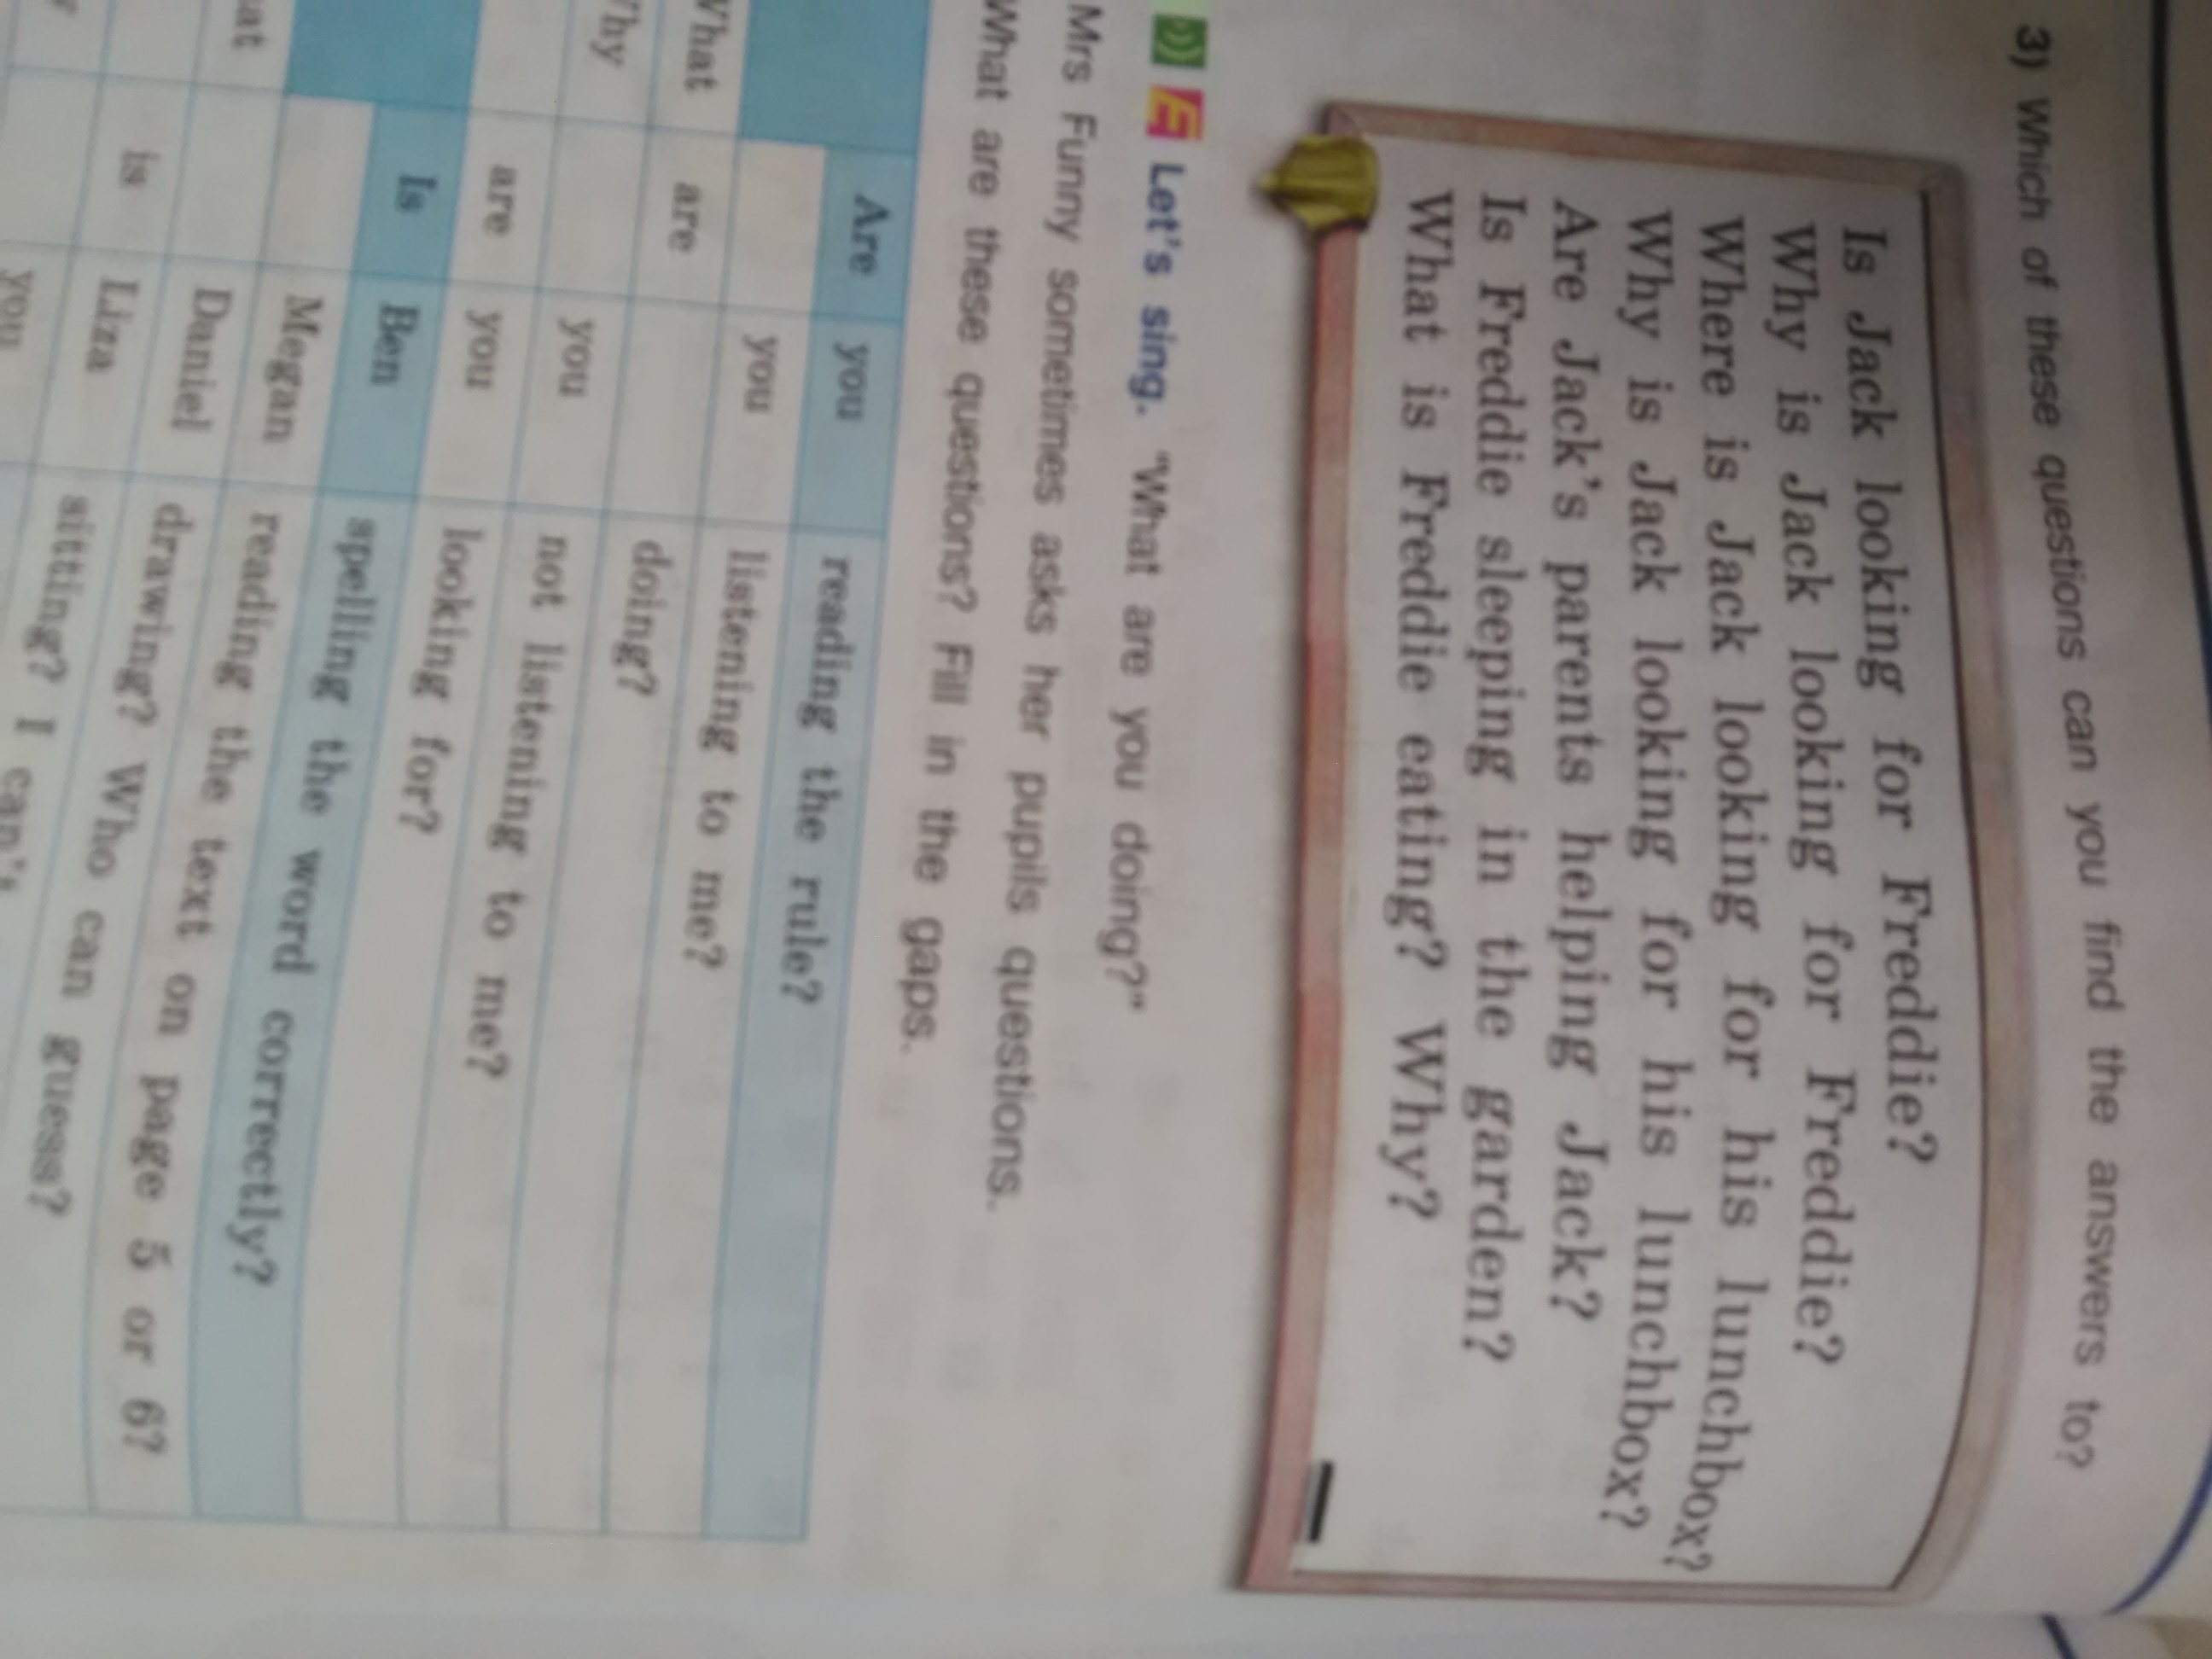 3) Which of these questions can you find the answers to?
Is Jack looking for Freddie?
Why is Jack looking for Freddie?
Where is Jack looking for his lunchbox?
Why is Jack looking for his lunchbox?
Are Jack's parents helping Jack?
Is Freddie sleeping in the garden?
What is Freddie eating? Why?
Let's sing. "What are you doing?"
Mrs Funny sometimes asks her pupils questions.
What are these questions? Fill in the gaps.
Are you reading the rule?
you listening to me?
What are doing?
you not listening to me?
are you looking for?
Is Ben spelling the word correctly?
Megan reading the text on page 5 or 6?
Daniel drawing? Who can guess?
is Liza sitting? I can't
you